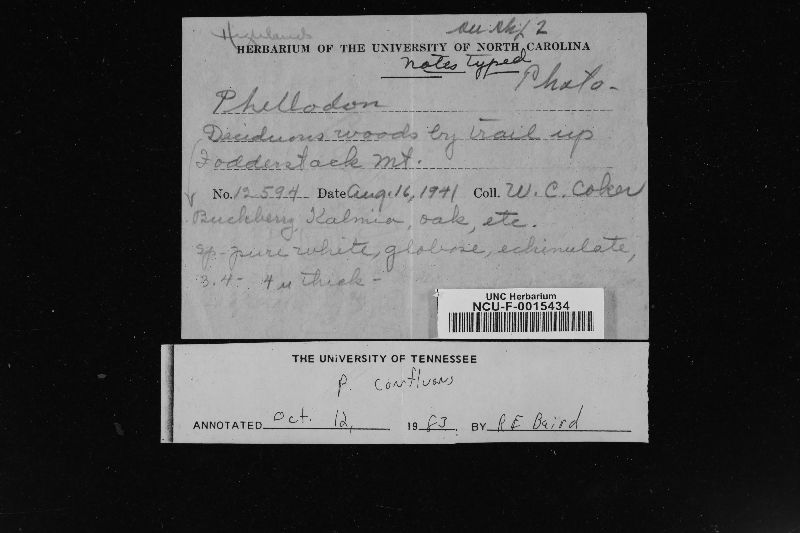 Highlands
HERBARIUM OF THE UNIVERSITY OF NORTH CAROLINA
notes typed
Photo-
Phellodon
Deciduous woods by trail up
Fodderstack Mt.
No. 12594 Date Aug. 16, 1941 Coll. W. C. Coker
Buckberry, Kalmia, oak, etc.
Sp- pure white, globose, echinulate,
3.4- 4 u thick -
UNC Herbarium
NCU-F-0015434
THE UNIVERSITY OF TENNESSEE
P. confluens
ANNOTATED Oct. 12, 1983 BY R E Baird